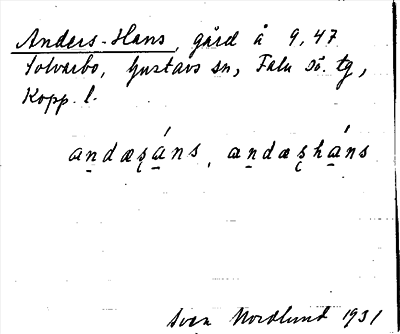 Anders-Hans, gård å 9,47
Solvarbo, Gustavs sn, Falu sö. tg,
Kopp. l.
a̱ṉdæʂá̱ns, a̱ṉdæʂhá̱ns
Sven Nordlund 1931